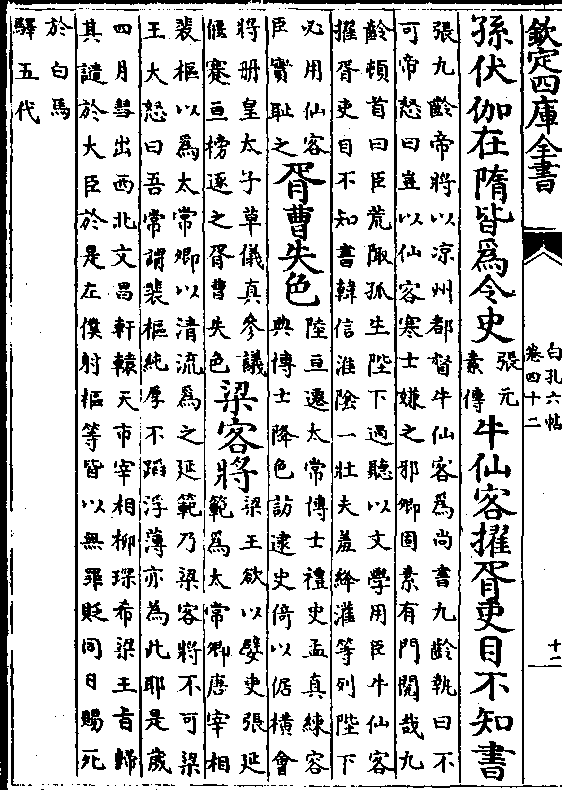 欽定四庫全書
白孔六帖
卷四十二
十二
孫伏伽在隋皆為令史
張元
素傳
牛仙客擢胥吏目不知書
張九齡帝將以凉州都督牛仙客為尚書九齡執曰不
可帝怒曰豈以仙客寒士嫌之邪卿固素有門閥哉九
齡頓首曰臣荒陬孤生陛下過聽以文學用臣牛仙客
擢胥吏目不知書韓信淮陰一壯夫羞絳灌等列陛下
必用仙客
臣實恥之
胥曹失色
陸亘遷太常博士禮史孟真練容
典博士降色訪逮史倚以倨橫會
將冊皇太子草儀真參議
偃蹇亘榜逐之胥曹失色
梁客將
梁王欲以嬖吏張延
範為太常卿唐宰相
裴樞以為太常卿以清流為之延範乃梁客將不可梁
王大怒曰吾常謂裴樞純厚不蹈浮薄亦為此耶是歲
四月彗出西北文昌軒轅天市宰相柳璨希梁王旨歸
其譴於大臣於是左僕射樞等皆以無罪貶同日賜死
於白馬
驛五代